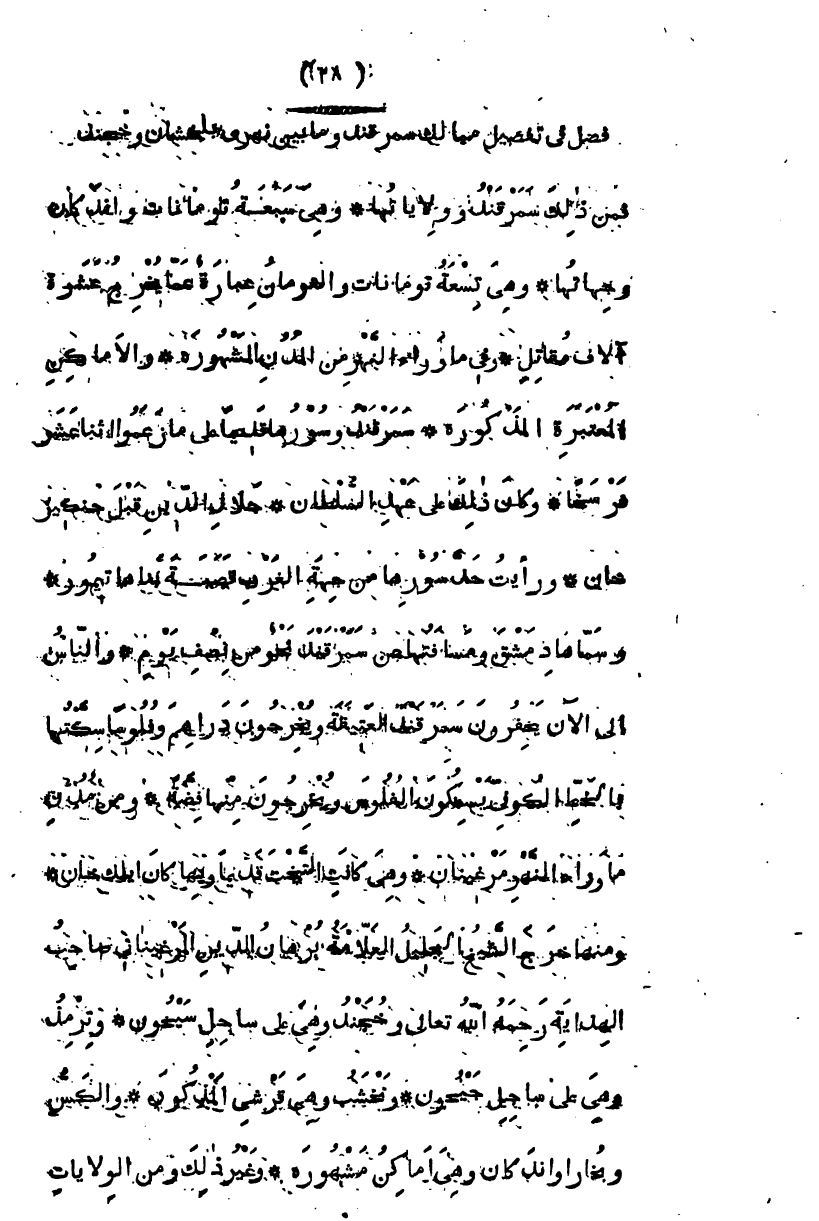 (٢٨)
فصل فى تفصيل ممالك سمرقند وما بين نهرى بلخشان وخجند
فَمِن ذٰلِكَ سَمَرْقَنْدُ وَوِلَايَاتُها * وَهِىَ سَبْعَةُ تُومَانَات وَانْدَكَان
وجِهاتُها * وهِىَ تِسْعَةُ تومَانات والتومانُ عِبَارَةٌ عَمَّا يُخْرِجُ عَشَرَةَ
آلاف مُقاتِلٍ * وفى ما وَرَاءَ النَّهْرِ مِنَ المُدُنِ المَشْهُورَة * والأماكِنِ
المُعْتَبَرَةِ المَذْكُورَه * سَمَرْقَنْدُ وسُوْرُها قَديماً على ما زَعَمُوا اثنا عَشَرَ
فَرْسَخًا * وكان ذٰلِكَ على عَهْدِ السُّلْطان * جَلالِ الدِّينِ قَبْلَ جَنكيز
خان * ورأيتُ حَدَّ سُوْرِها من جِهَةِ الغَرْبِ قَصَبَةً بَناها تيمُور *
وسَمَّاها دِمَشْقَ ومَسافَتُها عن سَمَرْقَنْدَ نَحْوٌ من نِصْفِ يَوْمٍ * والنّاسُ
الى الآن يَحْفِرُونَ سَمَرْقَنْدَ العَتِيقَةَ ويُخْرِجُونَ دَراهِمَ وفُلُوسًا سِكَّتُها
بالخَطِّ الكُوفِىِّ يَسْبِكُونَ الفُلُوسَ ويُخْرِجُونَ مِنْها فِضَّةً * ومن مُدُنِ
مَا وَرَاءَ النَّهْرِ مَرْغِينَان * وهِىَ كانَتِ التَّخْتَ قَدِيمًا وبِها كان ايلك خان *
ومنها خرَجَ الشَّيْخُ الجَلِيلُ العَلَّامَةُ بُرْهانُ الدّينِ المَرْغِينانى صاحِبُ
الهِدايَةِ رَحِمَهُ اللّٰهُ تعالى وخُجَنْدُ وهِىَ على ساحِلِ سَيْحُون * وتِرْمِذُ
وهِىَ على ساحِلِ جَيْحُون * ونَخْشَبُ وهِىَ قَرْشِى المَذْكُورَه * والكَشُّ
وبُخَارا واندكان وهِىَ أماكِنُ مَشْهُورَه * وغَيْرُ ذٰلِكَ ومن الولاياتِ